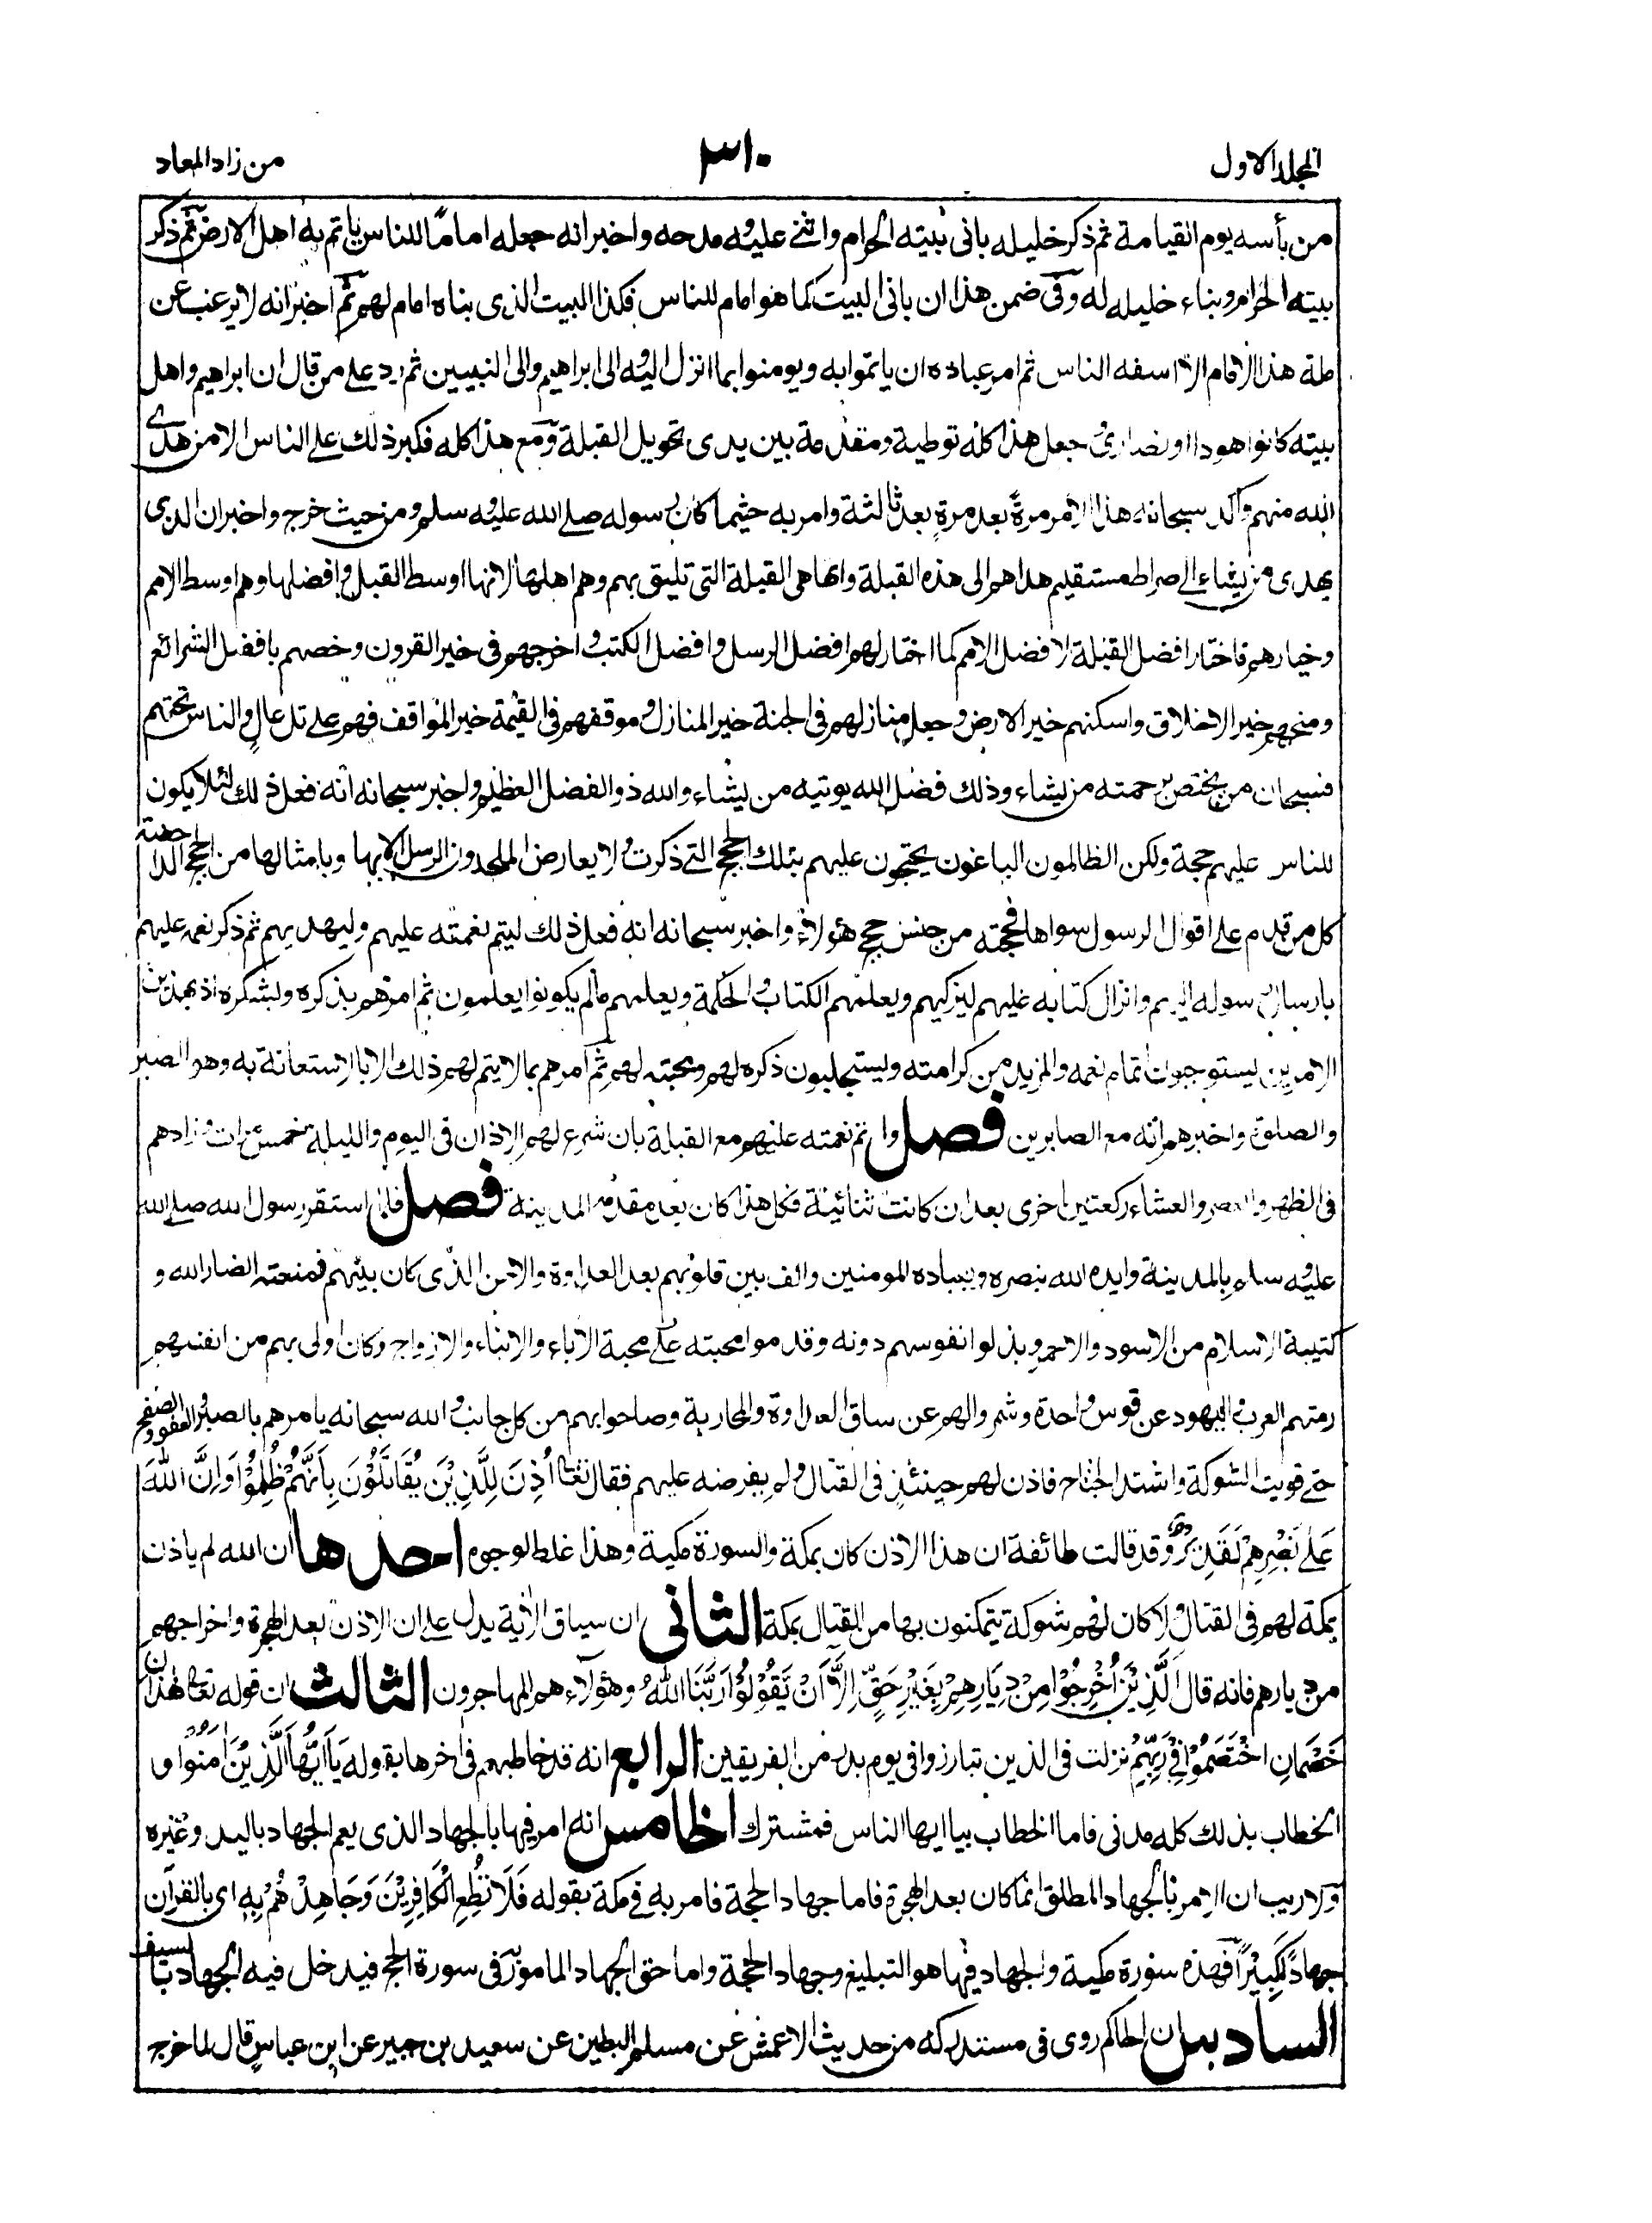 المجلد الاول
٣١٠
من زاد المعاد
من بأسه يوم القيامة ثم ذكر خليله بانى بيته الحرام واثنى عليه ومدحه واخبر انه جعله اماما للناس ياتم به اهل الارض ثم ذكر
بيته الحرام وبناء خليله له وفى ضمن هذا ان بانى البيت كما هو امام للناس فكذا البيت الذى بناه امام لهم ثم اخبر انه لا يرغب عن
ملة هذا الامام الا اسفه الناس ثم امر عباده ان ياتموا به ويومنوا بما انزل اليه والى ابراهيم والى النبيين ثم رد على من قال ان ابراهيم واهل
بيته كانوا هودا او نصارى وجعل هذا كله توطية ومقدمة بين يدى تحويل القبلة ومع هذا كله فكبر ذلك على الناس الا من هدى
الله منهم واكد سبحانه هذا الامر مرة بعد مرة بعد ثالثة وامر به حيثما كان رسوله صلى الله عليه وسلم ومن حيث خرج واخبر ان الذى
يهدى من يشاء الى صراط مستقيم هداهم الى هذه القبلة وانها هى القبلة التى تليق بهم وهم اهلها لانها اوسط القبل وافضلها وهم اوسط الامم
وخيارهم فاختار افضل القبلة لافضل الامم كما اختار لهم افضل الرسل وافضل الكتب واخرجهم فى خير القرون وخصهم بافضل الشرائع
ومنحهم خير الاخلاق واسكنهم خير الارض وجعل منازلهم فى الجنة خير المنازل وموقفهم فى القيمة خير المواقف فهم على تل عال والناس تحتهم
فسبحان من يختص برحمته من يشاء وذلك فضل الله يوتيه من يشاء والله ذو الفضل العظيم واخبر سبحانه انه فعل ذلك لئلا يكون
للناس عليهم حجة ولكن الظالمون الباغون يحتجون عليهم بتلك الحجج التى ذكرت ولا يعارض الملحدون الرسل الا بها وبامثالها من الحجج الداحضة
كل من قدم على اقوال الرسول سواها فحجته من جنس حجج هؤلاء واخبر سبحانه انه فعل ذلك ليتم نعمته عليهم وليهديهم ثم ذكر نعمه عليهم
بارسال رسوله اليهم وانزال كتابه عليهم ليزكيهم ويعلمهم الكتاب والحكمة ويعلمهم مالم يكونوا يعلمون ثم امرهم بذكره وبشكره اذ بهذين
الامرين يستوجبون اتمام نعمه والمزيد من كرامته ويستجلبون ذكره لهم ومحبته لهم ثم امرهم بما لا يتم لهم ذلك الا بالاستعانة به وهو الصبر
والصلوة واخبرهم انه مع الصابرين فصل واتم نعمته عليهم مع القبلة بان شرع لهم الاذان فى اليوم والليلة خمس مرات وزادهم
فى الظهر والعصر والعشاء ركعتين اخرى بعد ان كانت ثنائية فكل هذا كان بعد مقدمه المدينة فصل فلما استقر رسول الله صلى الله
عليه وسلم بالمدينة وايده الله بنصره وبعباده المومنين والف بين قلوبهم بعد العداوة والاحن الذى كان بينهم فمنعته انصار الله و
كتيبة الاسلام من الاسود والاحمر وبذلوا نفوسهم دونه وقدموا محبته على محبة الاباء والابناء والازواج وكان اولى بهم من انفسهم
رمتهم العرب واليهود عن قوس واحدة وشمروا لهم عن ساق العداوة والمحاربة وصاحوا بهم من كل جانب والله سبحانه يامرهم بالصبر والعفو والصفح
حتى قويت الشوكة واشتد الجناح فاذن لهم حينئذ فى القتال ولم يفرضه عليهم فقال تعالى اُذِنَ لِلَّذِيْنَ يُقَاتَلُوْنَ بِاَنَّهُمْ ظُلِمُوْا وَاِنَّ اللهَ
عَلٰى نَصْرِهِمْ لَقَدِيْرٌ وقد قالت طائفة ان هذا الاذن كان بمكة والسورة مكية وهذا غلط لوجوه احدها ان الله لم ياذن
بمكة لهم فى القتال ولا كان لهم شوكة يتمكنون بها من القتال بمكة الثانى ان سياق الاية يدل على ان الاذن بعد الهجرة واخراجهم
من ديارهم فانه قال اَلَّذِيْنَ اُخْرِجُوْا مِنْ دِيَارِهِمْ بِغَيْرِ حَقٍّ اِلَّا اَنْ يَّقُوْلُوْا رَبُّنَا اللهُ وهؤلاء هم المهاجرون الثالث ان قوله تعالى هٰذَانِ
خَصْمَانِ اخْتَصَمُوْا فِىْ رَبِّهِمْ نزلت فى الذين تبارزوا فى يوم بدر من الفريقين الرابع انه قد خاطبهم فى اخرها بقوله يَا اَيُّهَا الَّذِيْنَ اٰمَنُوْا و
الخطاب بذلك كله مدنى فاما الخطاب بيا ايها الناس فمشترك الخامس انه امر فيها بالجهاد الذى يعم الجهاد باليد وغيره
ولا ريب ان الامر بالجهاد المطلق انما كان بعد الهجرة فاما جهاد الحجة فامر به فى مكة بقوله فَلَا تُطِعِ الْكَافِرِيْنَ وَجَاهِدْهُمْ بِهٖ اى بالقرآن
جِهَادًا كَبِيْرًا فهذه سورة مكية والجهاد فيها هو التبليغ وجهاد الحجة واما حق الجهاد المامور فى سورة الحج فيدخل فيه الجهاد بالسيف
السادس ان الحاكم روى فى مستدركه من حديث الاعمش عن مسلم البطين عن سعيد بن جبير عن ابن عباس قال لما خرج